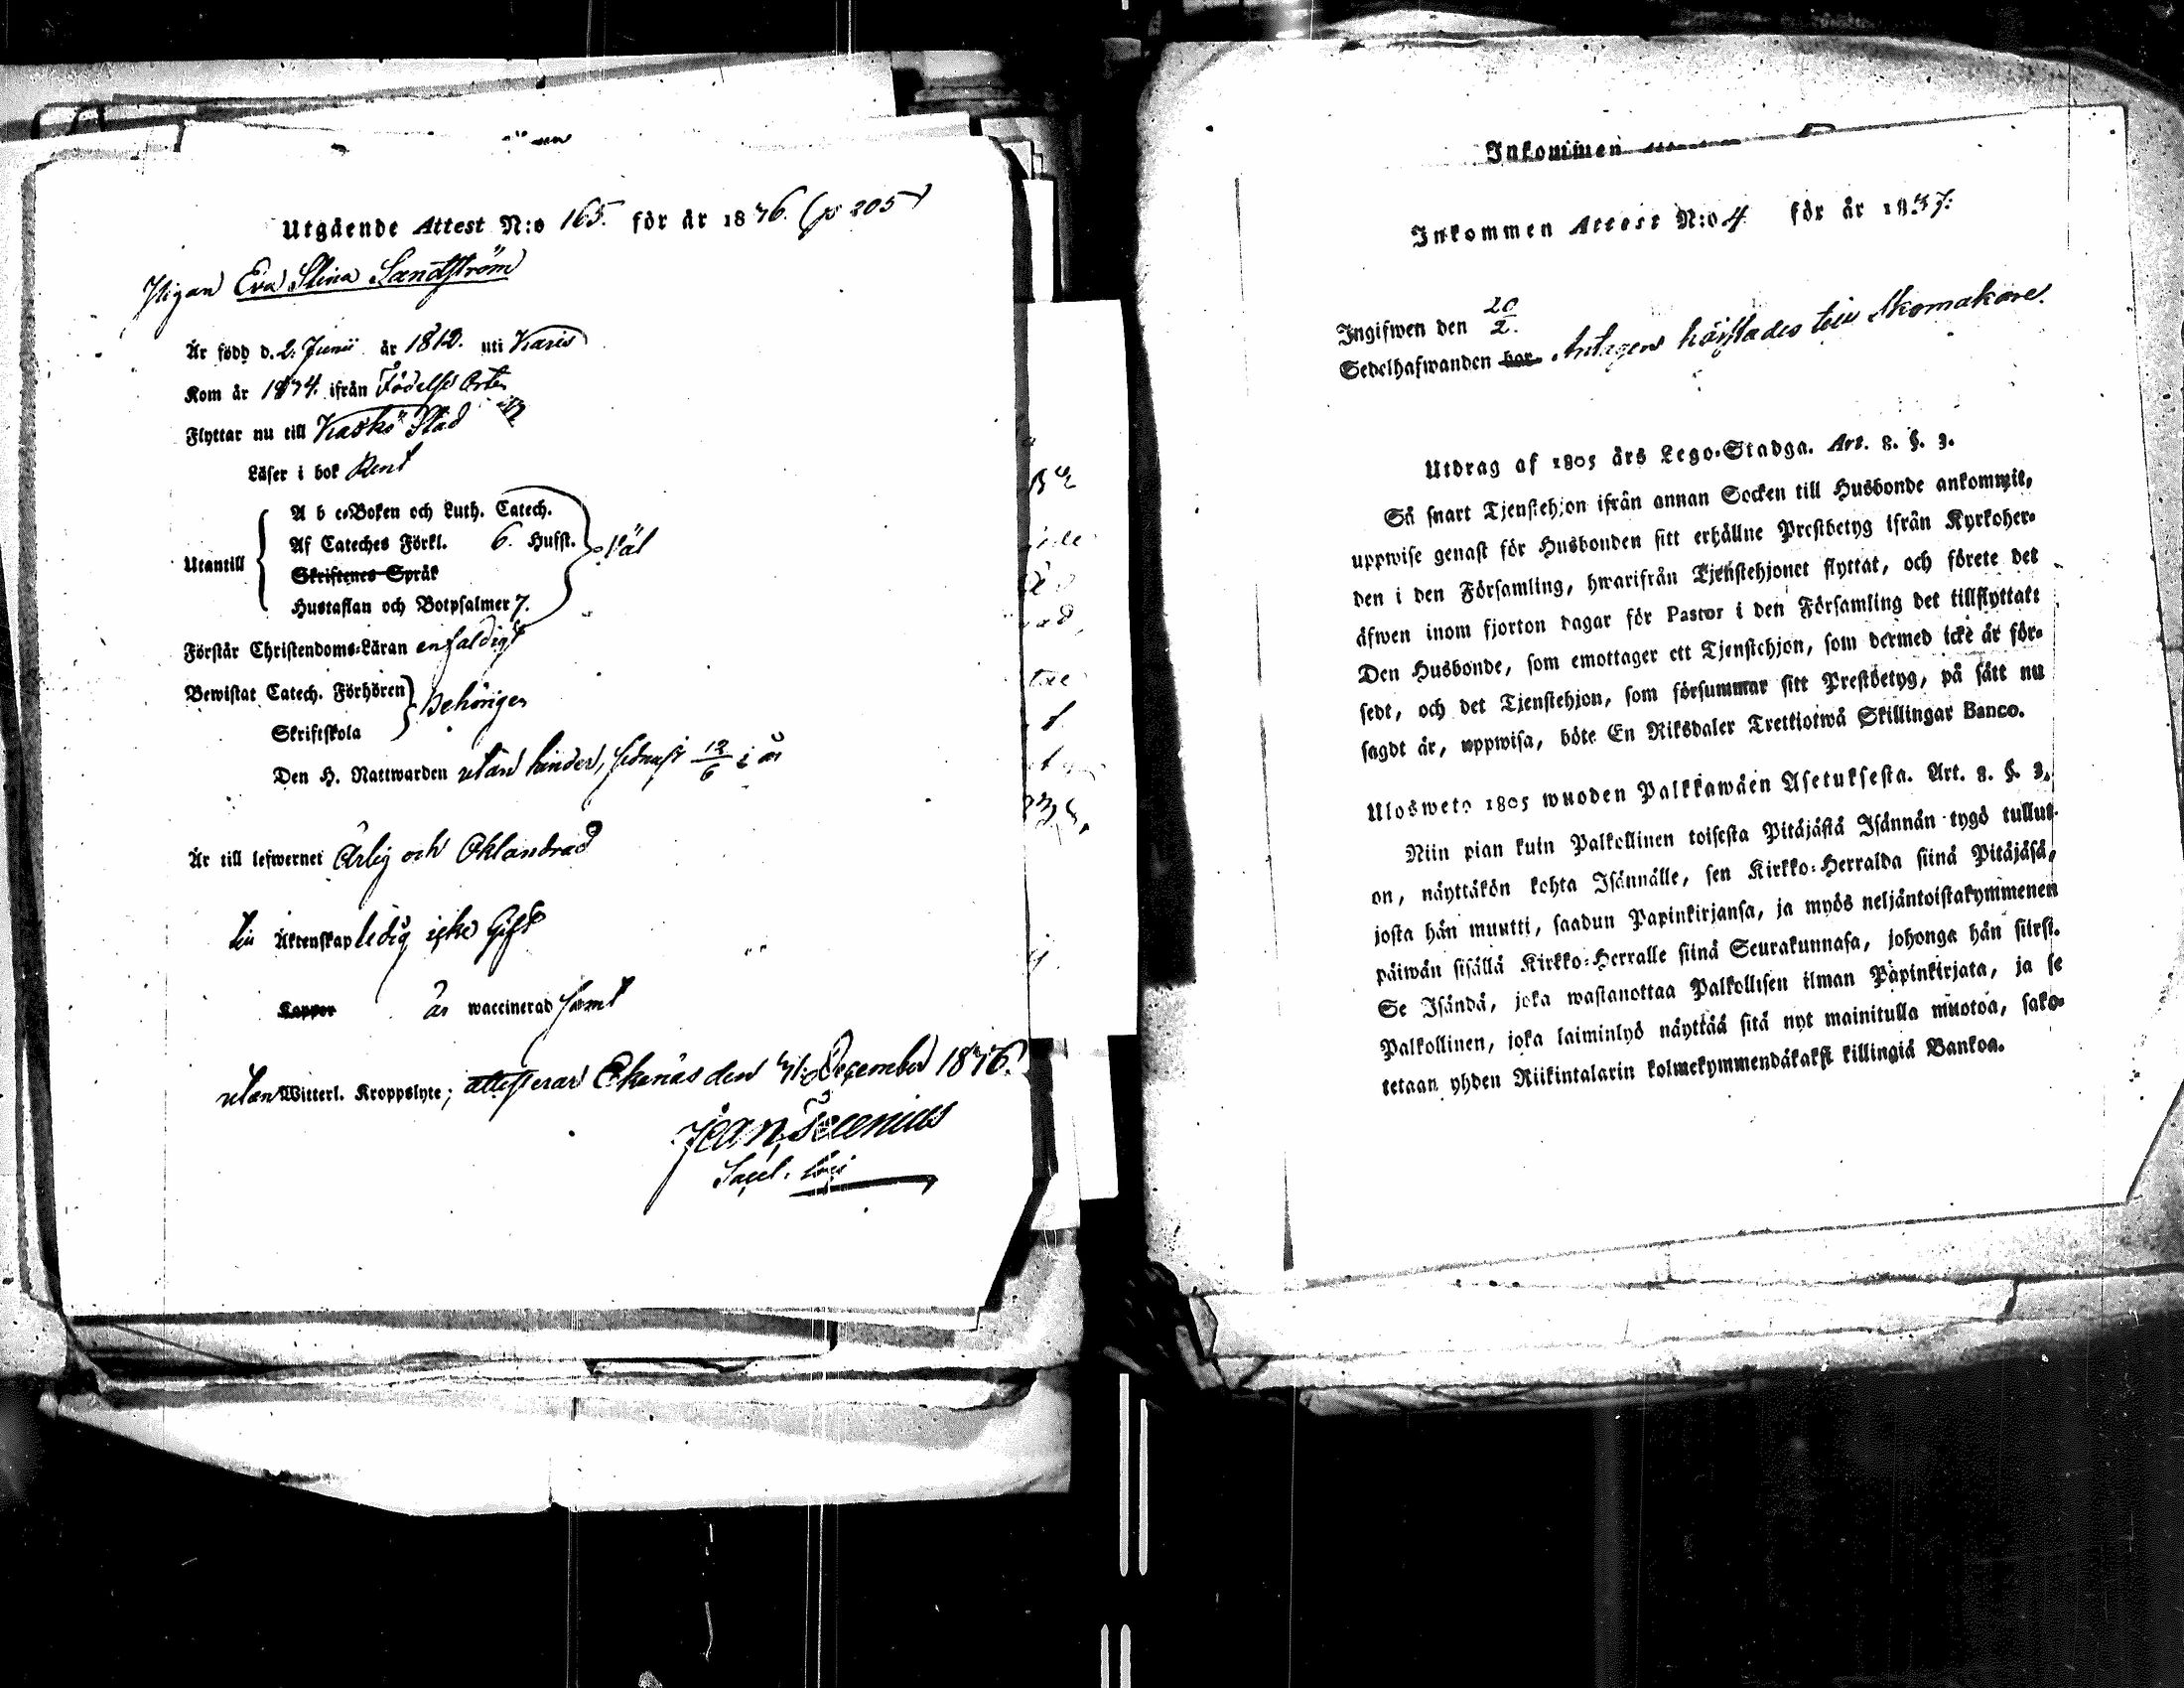 Utgående Attest N:o 165. för år 1836. (p 205)
Pigan Eva Stina Sandström
Är född d. 2. Junii år 1812. uti Karis
Kom år 1834. ifrån Födelse Orten
Flyttar nu till Kaskö Stad
Läser i bok Rent
Utantill
A b c-Boken och Luth. Catech.
Af Cateches Förkl. 6. Husst.
Skriftenes Språk
Hustaflan och Botpsalmer 7.
Väl
Förstår Christendoms-Läran enfaldigt
Bewistat Catech. Förhören
Skriftskola
Behörigen
Den H. Nattwarden utan hinder, sednast 12/6 i år
Är till lefwernet Ärlig och Oklandrad
till Äktenskap ledig icke Gift
Koppor är waccinerad samt
utan Witterl. Kroppslyte; attesterar Ekenäs den 31. December 1836.
Inkommen
Inkommen Attest N:o 4 för år 1837.
Ingifwen den 20/2.
Sedelhafwanden har Skomakare.
Utdrag af 1805 års Lego-Stadga. Art. 8. §. 3.
Så snart Tjenstehjon ifrån annan Socken till Husbonde ankommit,
uppwise genast för Husbonden sitt erhållne Prestbetyg ifrån Kyrkoher-
den i den Församling, hwarifrån Tjenstehjonet flyttat, och förete det
äfwen inom fjorton dagar för Pastor i den Församling det tillflyttatt
Den Husbonde, som emottager ett Tjenstehjon, som dermed icke är för-
sedt, och det Tjenstehjon, som försummar sitt Prestbetyg, på sätt nu
sagdt är, uppwisa, böte En Riksdaler Trettiotwå Skillingar Banco.
Ulosweto 1805 wuoden Palkkawäen Asetuksesta. Art. 8. §. 3.
Niin pian kuin Palkollinen toisesta Pitäjästä Isännän tygö tullut
on, näyttäkön kohta Isännälle, sen Kirkko-Herralda siinä Pitäjäsä,
josta hän muutti, saadun Papinkirjansa, ja myös neljäntoistakymmenen
päiwän sisällä Kirkko-Herralle siinä Seurakunnasa, johonga hän siirsi.
Se Isändä, joka wastanottaa Palkollisen ilman Papinkirjata, ja se
Palkollinen, joka laiminlyö näyttää sitä nyt mainitulla muotoa, sako-
tetaan yhden Riikintalarin kolmekymmendäkaksi killingiä Bankoa.